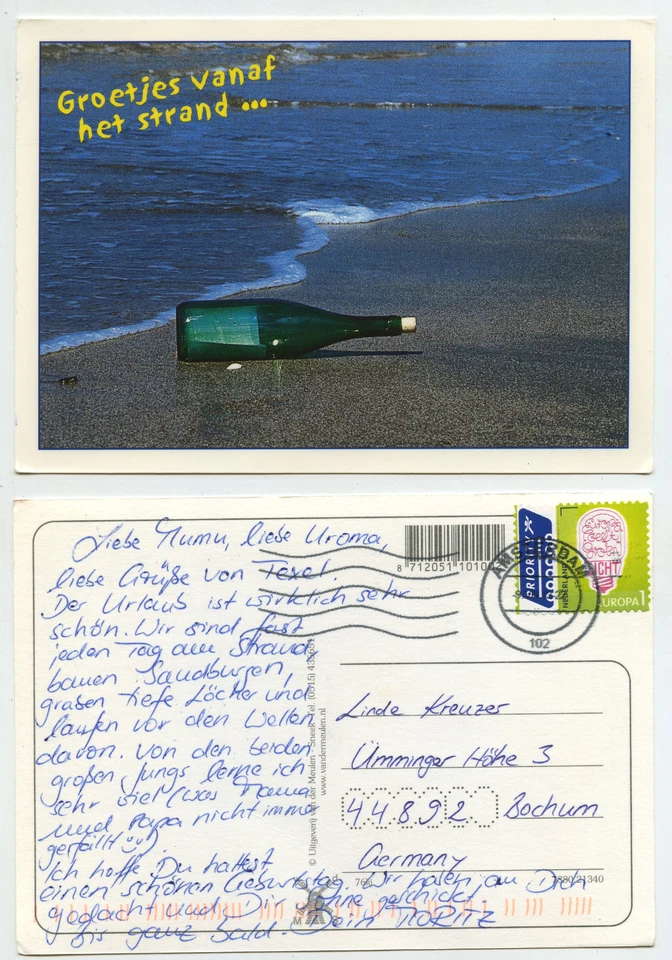 Groetjes vanaf
het strand ...
Liebe Mumu, liebe Uroma,
liebe Grüße von Texel
Der Urlaub ist wirklich sehr
schön. Wir sind fast
jeden Tag am Strand,
bauen Sandburgen,
graben tiefe Löcher und
laufen vor den Wellen
davon. Von den beiden
großen Jungs lerne ich
sehr viel (was Mama
und Papa nicht immer
gefällt).
Ich hoffe, Du hattest
einen schönen Geburtstag. Wir haben an Dich
gedacht und Dir geschickt
Bis ganz bald. Dein MORITZ
8 712051 10100
© Uitgeverij van der Meulen - Sneek - Tel. (0515)
www.vandermeulen.nl
PRIORITY
NEDERLAND
EUROPA 1
AMSTERDAM
102
Linde Kreuzer
Ümminger Höhe 3
44892 Bochum
Germany